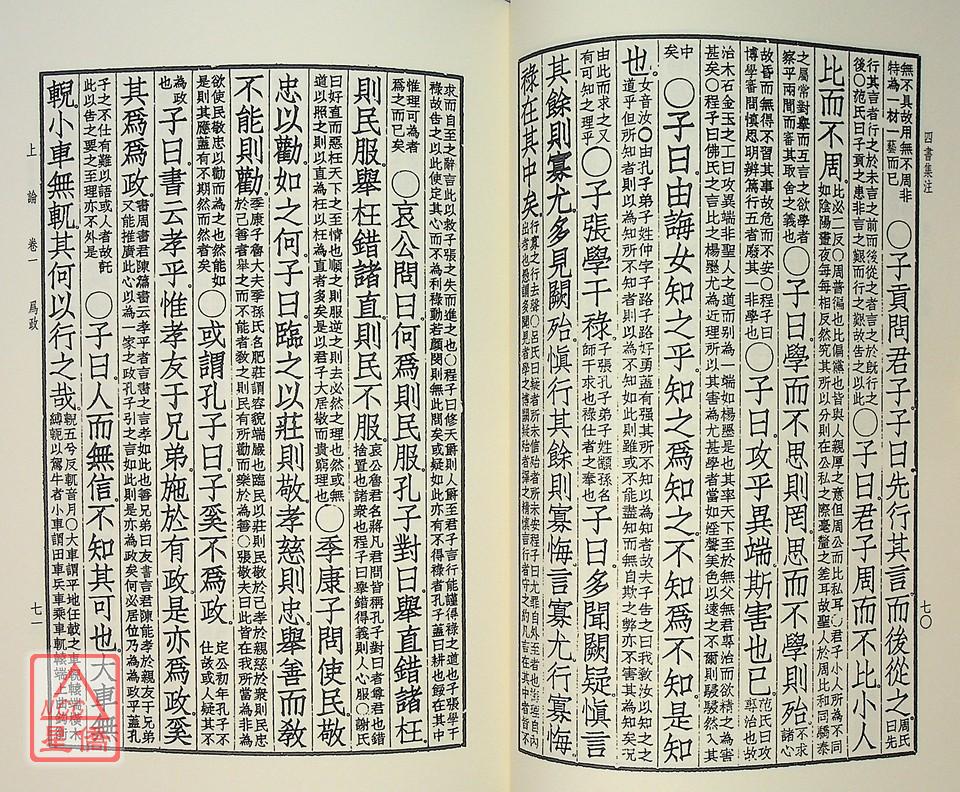 四書集注
七〇
無不具故用無不周非
特為一材一藝而已
○子貢問君子子曰先行其言而後從之
周氏
曰先
行其言者行之於未言之前而後從之者言之於既行之
後○范氏曰子貢之患非言之艱而行之艱故告之以此
○子曰君子周而不比小人
比而不周
比必二反○周普徧也比偏黨也皆與人親厚之意但周公而比私耳○君子小人所為不同
如陰陽晝夜每每相反然究其所以分則在公私之際毫釐之差耳故聖人於周比和同驕泰
之屬常對舉而互言之欲學者
察乎兩間而審其取舍之義也
○子曰學而不思則罔思而不學則殆
不求
諸心
故昏而無得不習其事故危而不安○程子曰
博學審問慎思明辨篤行五者廢其一非學也
○子曰攻乎異端斯害也已
范氏曰攻
專治也故
治木石金玉之工曰攻異端非聖人之道而别為一端如楊墨是也其率天下至於無父無君專治而欲精之為害
甚矣○程子曰佛氏之言比之楊墨尤為近理所以其害為尤甚學者當如婬聲美色以遠之不爾則駸駸然入其
中
矣
○子曰由誨女知之乎知之爲知之不知爲不知是知
也
女音汝○由孔子弟子姓仲字子路子路好勇蓋有强其所不知以為知者故夫子告之曰我教汝以知之之
道乎但所知者則以為知所不知者則以為不知如此則雖或不能盡知而無自欺之弊亦不害其為知矣況
由此而求之又
有可知之理乎
○子張學干祿
子張孔子弟子姓顓孫名
師干求也祿仕者之奉也
子曰多聞闕疑慎言
其餘則寡尤多見闕殆慎行其餘則寡悔言寡尤行寡悔
祿在其中矣
行寡之行去聲○呂氏曰疑者所未信殆者所未安程子曰尤罪自外至者也悔理自內
出者也愚謂多聞見者學之博闕疑殆者擇之精慎言行者守之約凡言在其中者皆不
求而自至之辭言此以救子張之失而進之也○程子曰修天爵則人爵至君子言行能謹得祿之道也子張學干
祿故告之以此使定其心而不為利祿動若顏閔則無此問矣或疑如此亦有不得祿者孔子蓋曰耕也餒在其中
惟理可為者
為之而已矣
○哀公問曰何爲則民服孔子對曰舉直錯諸枉
則民服舉枉錯諸直則民不服
哀公魯君名蔣凡君問皆稱孔子對曰者尊君也錯
捨置也諸衆也程子曰舉錯得義則人心服○謝氏
曰好直而惡枉天下之至情也順之則服逆之則去必然之理也然或無
道以照之則以直為枉以枉為直者多矣是以君子大居敬而貴窮理也
○季康子問使民敬
忠以勸如之何子曰臨之以莊則敬孝慈則忠舉善而教
不能則勸
季康子魯大夫季孫氏名肥莊謂容貌端嚴也臨民以莊則民敬於己孝於親慈於衆則民忠
於己善者舉之而不能者教之則民有所勸而樂於為善○張敬夫曰此皆在我所當為非為
欲使民敬忠以勸而為之也然能如
是則其應蓋有不期然而然者矣
○或謂孔子曰子奚不爲政
定公初年孔子不
仕故或人疑其不
為政
也
子曰書云孝乎惟孝友于兄弟施於有政是亦爲政奚
其爲爲政
書周書君陳篇書云孝乎者言書之言孝如此也善兄弟曰友書言君陳能孝於親友于兄弟
又能推廣此心以為一家之政孔子引之言如此則是亦為政矣何必居位乃為為政乎蓋孔
子之不仕有難以語或人者故託
此以告之要之至理亦不外是
○子曰人而無信不知其可也大車無
輗小車無軏其何以行之哉
輗五兮反軏音月○大車謂平地任載之車輗轅端橫木
縛軛以駕牛者小車謂田車兵車乘車軏轅端上曲鉤衡
上論 卷一 爲政
七一
星僑